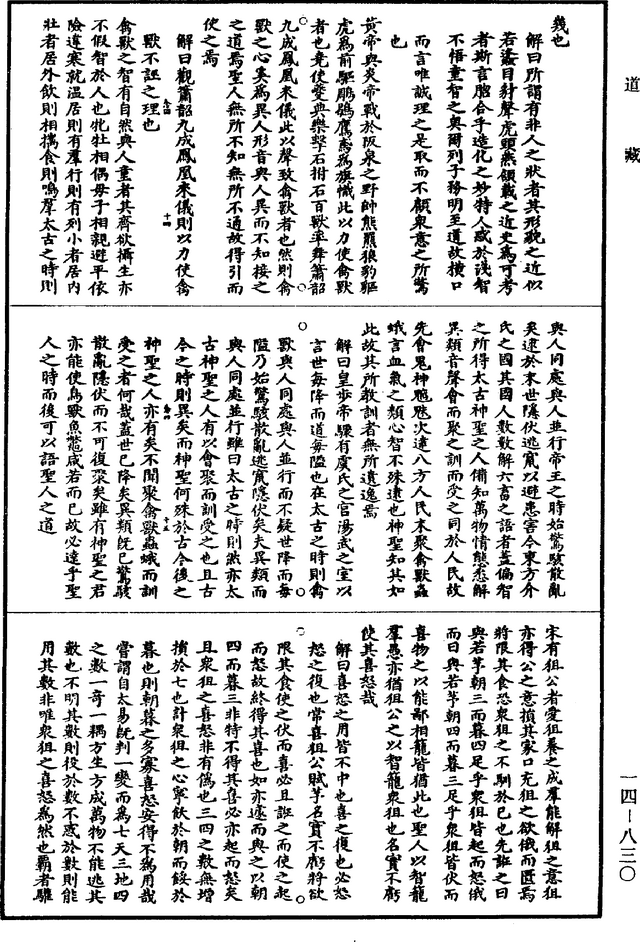 道藏
幾也
解曰所謂有非人之狀者其形貌之近似
若蠭目豺聲虎頭燕頷載之近史爲可考
者斯言脗合乎造化之妙特人惑於淺智
不悟童智之奧爾列子務明至道故橫口
而言唯誠理之是取而不顧衆意之所驚
也
黃帝與炎帝戰於阪泉之野帥熊羆狼豹貙
虎爲前驅鵰鶡鷹鳶爲旗幟此以力使禽獸
者也堯使夔典樂擊石拊石百獸率舞簫韶
九成鳳凰來儀此以聲致禽獸者也然則禽
獸之心奚爲異人形音與人異而不知接之
之道焉聖人無所不知無所不通故得引而
使之焉
解曰觀簫韶九成鳳凰來儀則以力使禽
獸不誣之理也
禽獸之智有自然與人童者其齊欲攝生亦
不假智於人也牝牡相偶母子相親避平依
險違寒就溫居則有羣行則有列小者居內
壯者居外飲則相攜食則鳴羣太古之時則
與人同處與人並行帝王之時始驚駭散亂
矣逮於末世隱伏逃竄以避患害今東方介
氏之國其國人數數解六畜之語者蓋偏智
之所得太古神聖之人備知萬物情態悉解
異類音聲會而聚之訓而受之同於人民故
先會鬼神魑魅次達八方人民末聚禽獸蟲
蛾言血氣之類心智不殊遠也神聖知其如
此故其所教訓者無所遺逸焉
解曰皇步帝驟有虞氏之官湯武之室以
言世每降而道每隘也在太古之時則禽
獸與人同處與人並行而不疑世降而每
隘乃始驚駭散亂逃竄隱伏矣夫異類而
與人同處並行雖曰太古之時則然亦太
古神聖之人有以會聚而訓受之也且古
今之時則異矣而神聖何殊於古今後之
神聖之人亦有矣不聞聚禽獸蟲蛾而訓
受之者何哉蓋世已降矣異類既已驚駭
散亂隱伏而不可復聚矣雖有神聖之君
亦能使鳥獸魚鼈咸若而已故必遠乎聖
人之時而後可以語聖人之道
宋有狙公者愛狙養之成羣能解狙之意狙
亦得公之意損其家口充狙之欲俄而匱焉
將限其食恐衆狙之不馴於已也先誑之曰
與若芧朝三而暮四足乎衆狙皆起而怒俄
而曰與若芧朝四而暮三足乎衆狙皆伏而
喜物之以能鄙相籠皆猶此也聖人以智籠
羣愚亦猶狙公之以智籠衆狙也名實不虧
使其喜怒哉
解曰喜怒之用皆不中也喜之復也必怒
怒之復也常喜狙公賦芧名實不虧將欲
限其食使之伏而喜必且誑之而使之起
而怒故終得其喜也如亦遽而與之以朝
四而暮三非特不得其喜必亦起而怒矣
且衆狙之喜怒非有僞也三四之數無增
損於七也計衆狙之心寧飫於朝而餒於
暮也則朝暮之多寡喜怒安得不爲用哉
嘗謂自太易既判一變而爲七天三地四
之數一奇一耦方生方成萬物不能逃其
數也不明其數則役於數不惑於數則能
用其數非唯衆狙之喜怒爲然也霸者驩
一四-八三〇